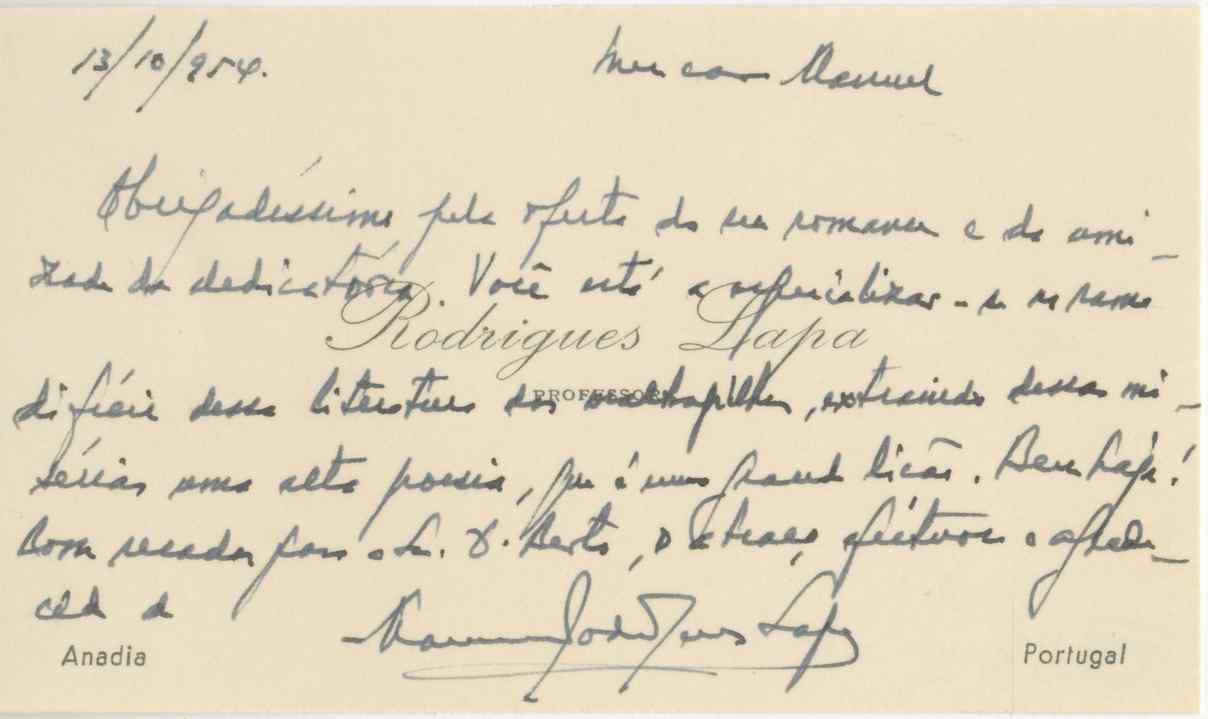 13/10/954.
Meu caro Manuel
Obrigadíssimo pela oferta do seu romance e da ami-
zade da dedicatória. Você está a especializar-se no ramo
Rodrigues Lapa
PROFESSOR
difícil dessa literatura dos maltrapilhos, extraindo dessas mi-
sérias uma alta poesia, que é uma grande lição. Bem haja!
Com recados para a Sr. D. Berta, o abraço afectuoso e agrade-
cido de
Manuel Rodrigues Lapa
Anadia
Portugal